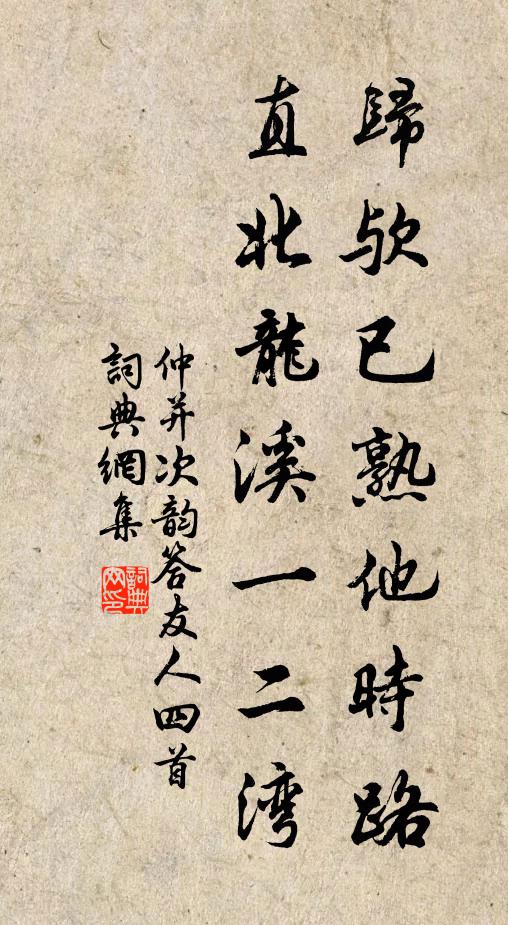 歸歟已熟他時路
直北龍溪一二湾
仲并次韵答友人四首
詞典網集
詞典
网印